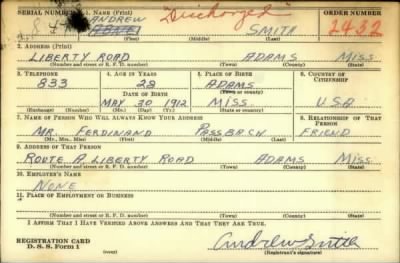 SERIAL NUMBER 1. Name (Print) "Discharged" ORDER NUMBER
ANDREW SMITH 2432
(First) (Middle) (Last)
2. Address (Print)
LIBERTY ROAD ADAMS MISS.
(Number and street or R. F. D. number) (Town) (County) (State)
3. Telephone 4. Age in Years 5. Place of Birth 6. Country of Citizenship
833 28 ADAMS
Date of Birth (Town or county)
MAY 30 1912 MISS. USA
(Exchange) (Number) (Mo.) (Day) (Yr.) (State or country)
7. Name of Person Who Will Always Know Your Address 8. Relationship of That Person
MR. FERDINAND PASSBACH FRIEND
(Mr., Mrs., Miss) (First) (Middle) (Last)
9. Address of That Person
ROUTE A LIBERTY ROAD ADAMS MISS
(Number and street or R. F. D. number) (Town) (County) (State)
10. Employer's Name
NONE
11. Place of Employment or Business
(Number and street or R. F. D. number) (Town) (County) (State)
I Affirm That I Have Verified Above Answers and That They Are True.
REGISTRATION CARD
D. S. S. Form 1 (over) Andrew Smith
(Registrant's signature)